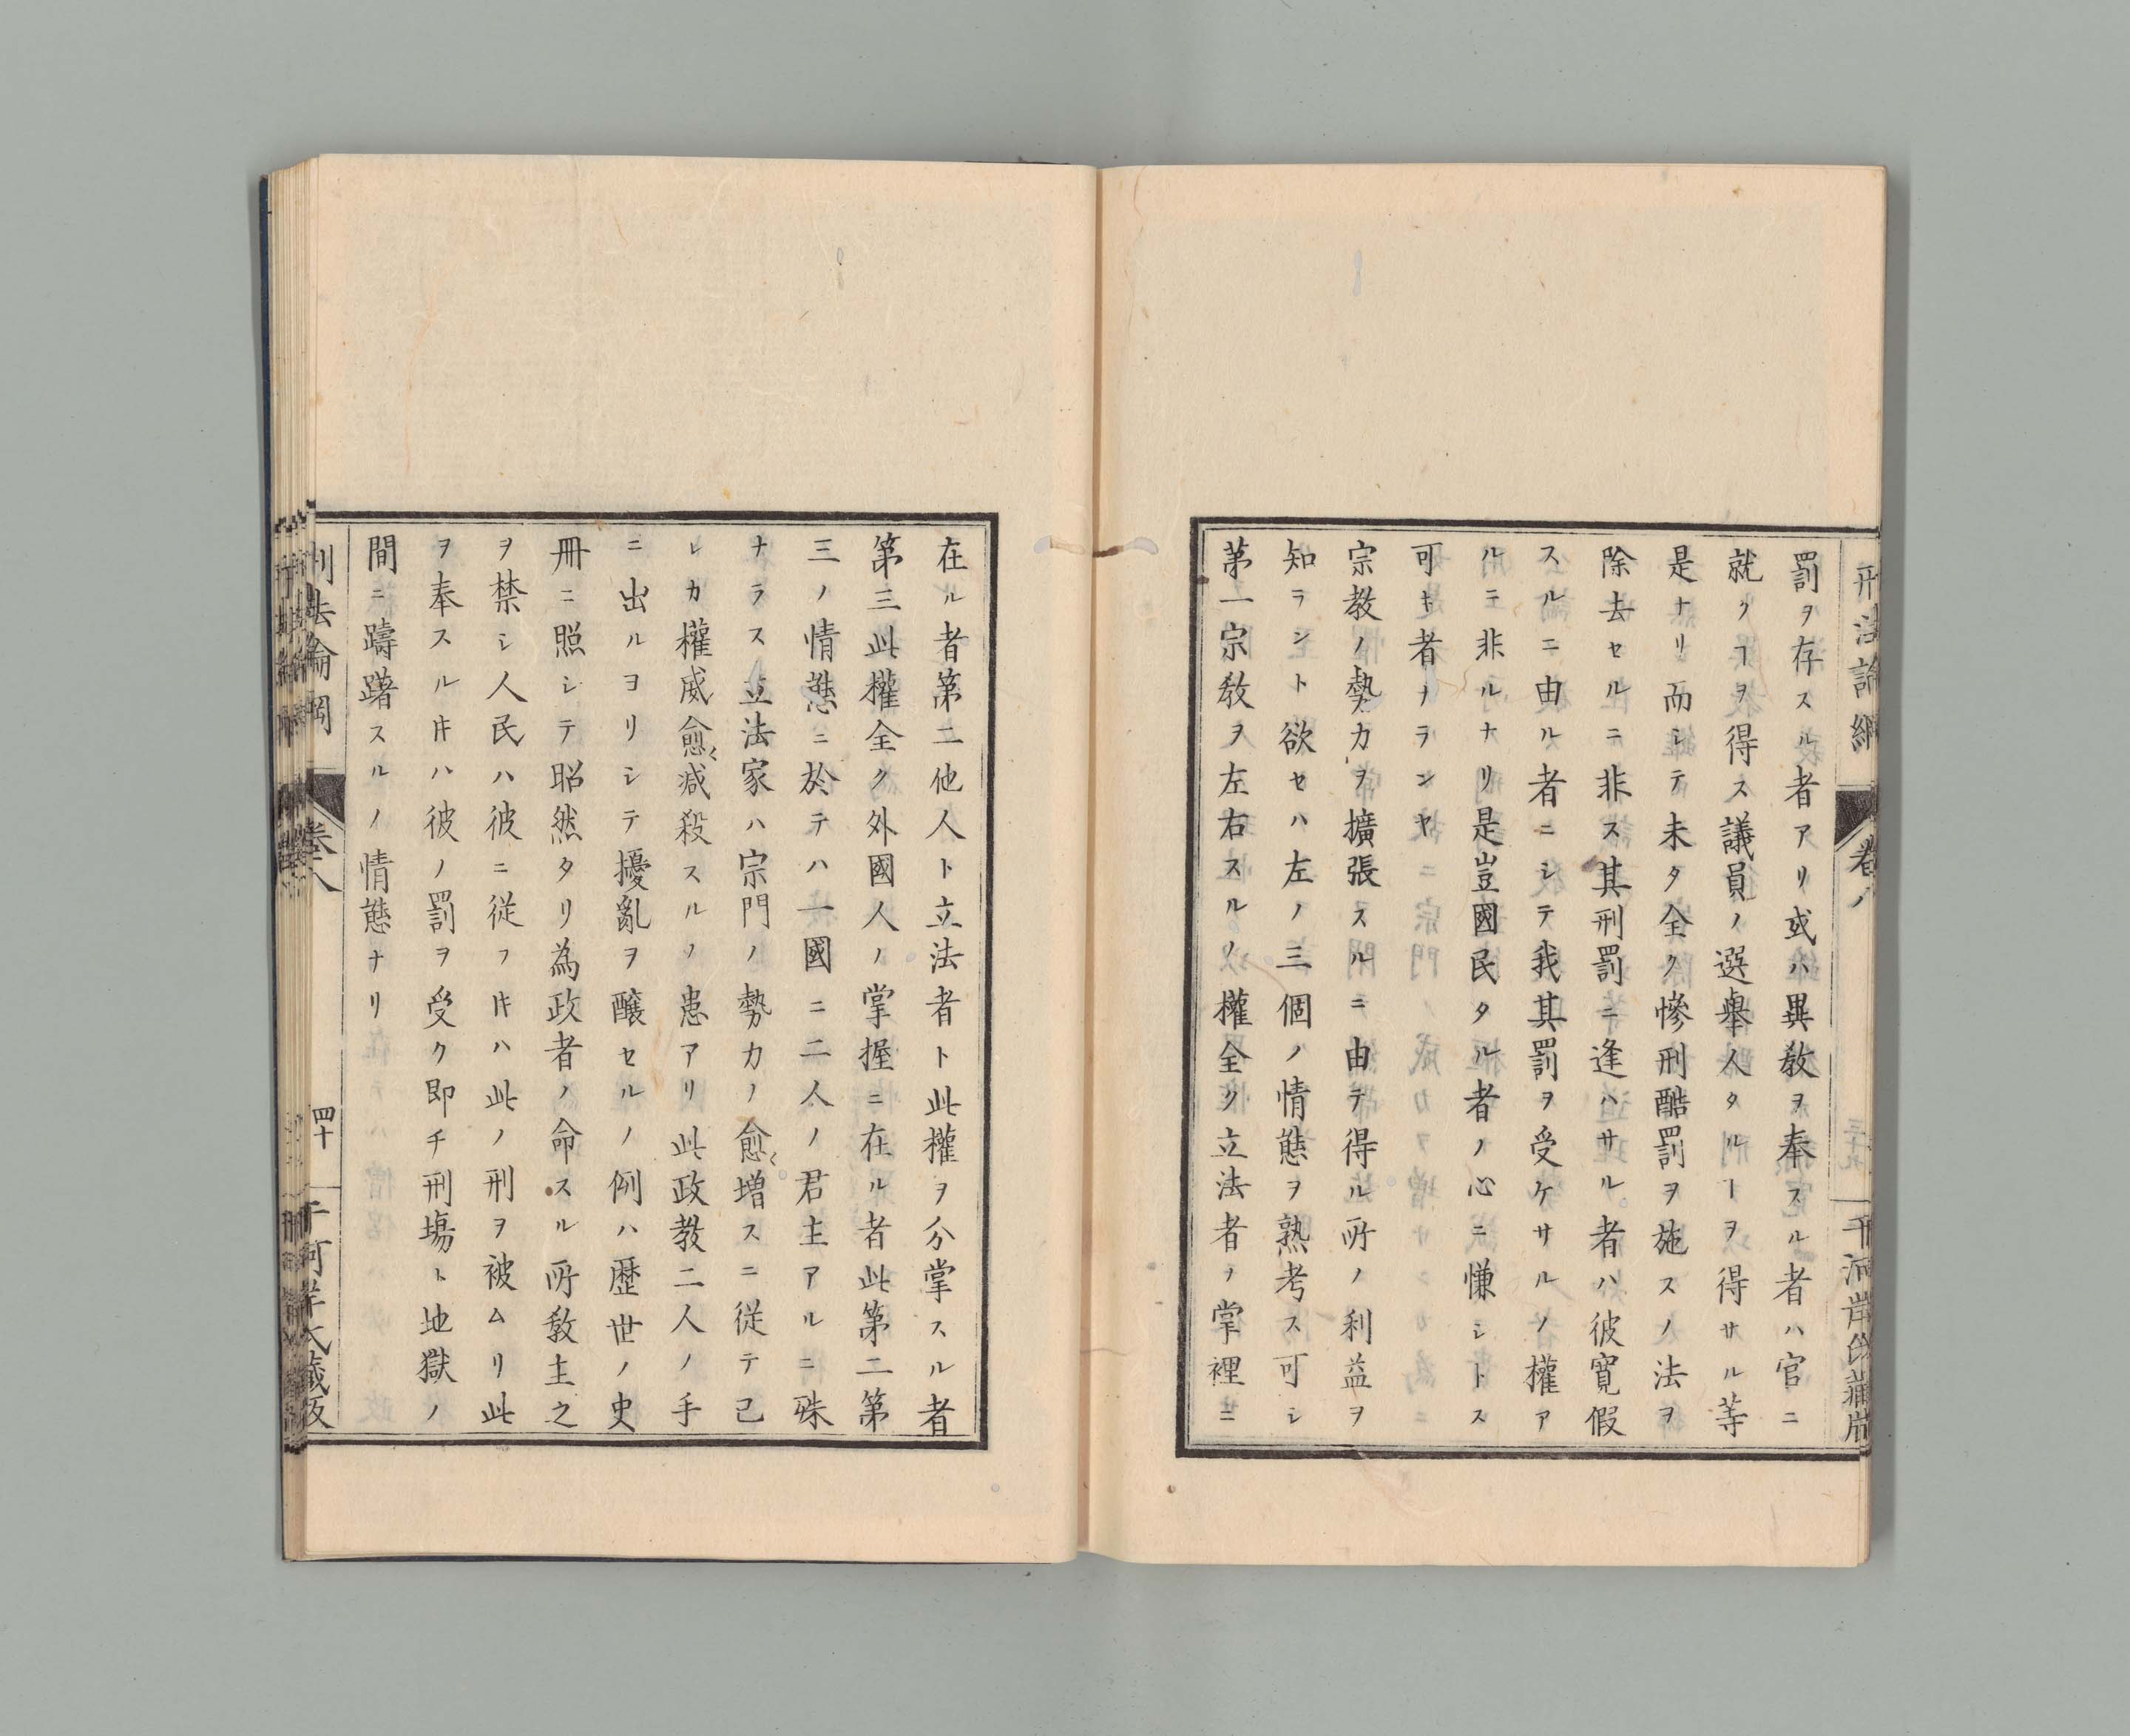 刑法論綱
卷八
罰ヲ存スル者アリ或ハ異敎ヲ奉スル者ハ官ニ
就クヿヲ得ス議員ノ選擧人タルヿヲ得サル等
是ナリ而シテ未タ全ク慘刑酷罰ヲ施スノ法ヲ
除去セルニ非ス其刑罰ニ逢ハサル者ハ彼寬假
スルニ由ル者ニシテ我其罰ヲ受ケサルノ權ア
ルニ非ルナリ是豈國民タル者ノ心ニ慊シトス
可キ者ナランヤ
宗敎ノ勢力ヲ擴張スルニ由テ得ル所ノ利益ヲ
知ラント欲セハ左ノ三個ノ情態ヲ熟考ス可シ
第一宗敎ヲ左右スルノ權全ク立法者ノ掌裡ニ
在ル者第二他人ト立法者ト此權ヲ分掌スル者
第三此權全ク外國人ノ掌握ニ在ル者此第二第
三ノ情態ニ於テハ一國ニ二人ノ君主アルニ殊
ナラス立法家ハ宗門ノ勢力ノ愈〻增スニ從テ己
レカ權威愈〻减殺スルノ患アリ此政敎二人ノ手
ニ出ルヨリシテ擾亂ヲ釀セルノ例ハ歷世ノ史
冊ニ照シテ昭然タリ為政者ノ命スル所敎主之
ヲ禁シ人民ハ彼ニ從フ𪜈ハ此ノ刑ヲ被ムリ此
ヲ奉スル𪜈ハ彼ノ罰ヲ受ク即チ刑塲ト地獄ノ
間ニ躊躇スルノ情態ナリ
刑法論綱
卷八
四十
干河岸氏藏版